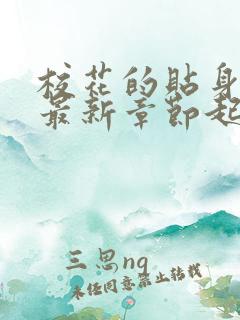 校花的贴身
最新章节起
三思ng
未经同意禁止转载